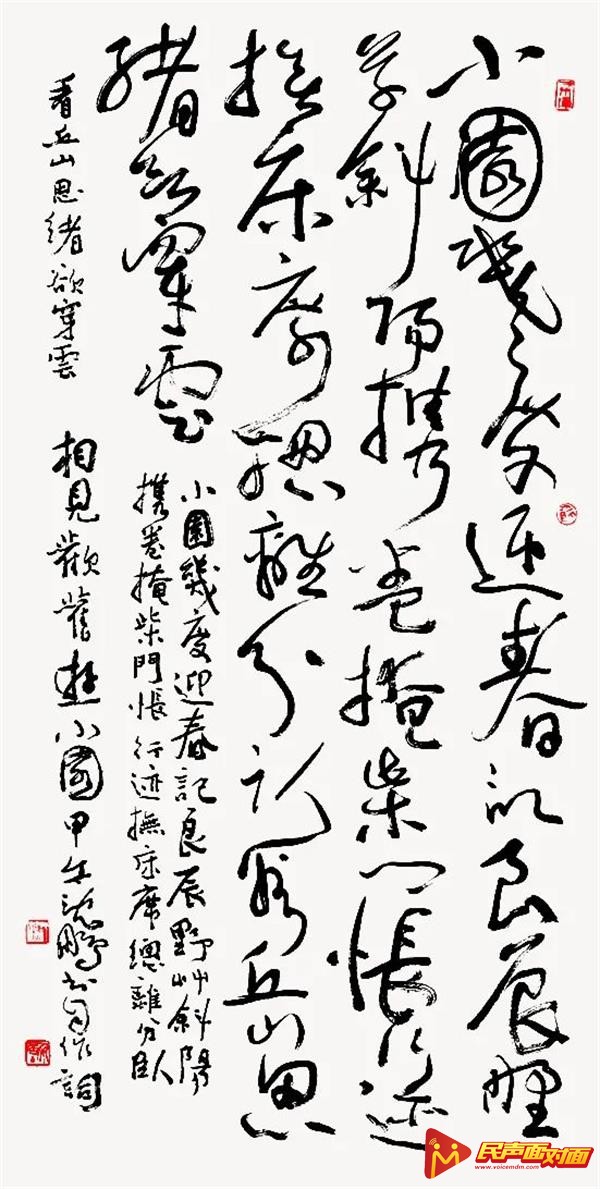 小園幾度迎春記良辰野
草斜陽携卷掩柴門悵行迹
撫床席總離分臥看丘山思
緒欲穿雲
小園幾度迎春記良辰野艸斜陽
携卷掩柴門悵行迹撫床席總離分臥
看丘山思緒欲穿雲 相見歡舊遊小園甲午沈鵬书自作詞
民声面对面
www.voicemdm.com